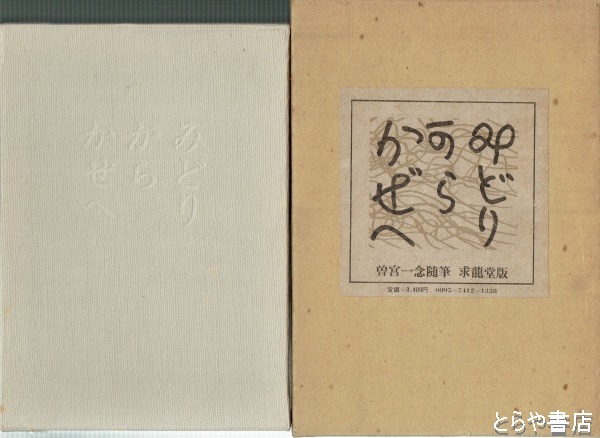 みどり
から
かぜへ
みどり
から
かぜへ
曽宮一念随筆 求龍堂版
定価=3,400円 0095-7412-1328
とらや書店